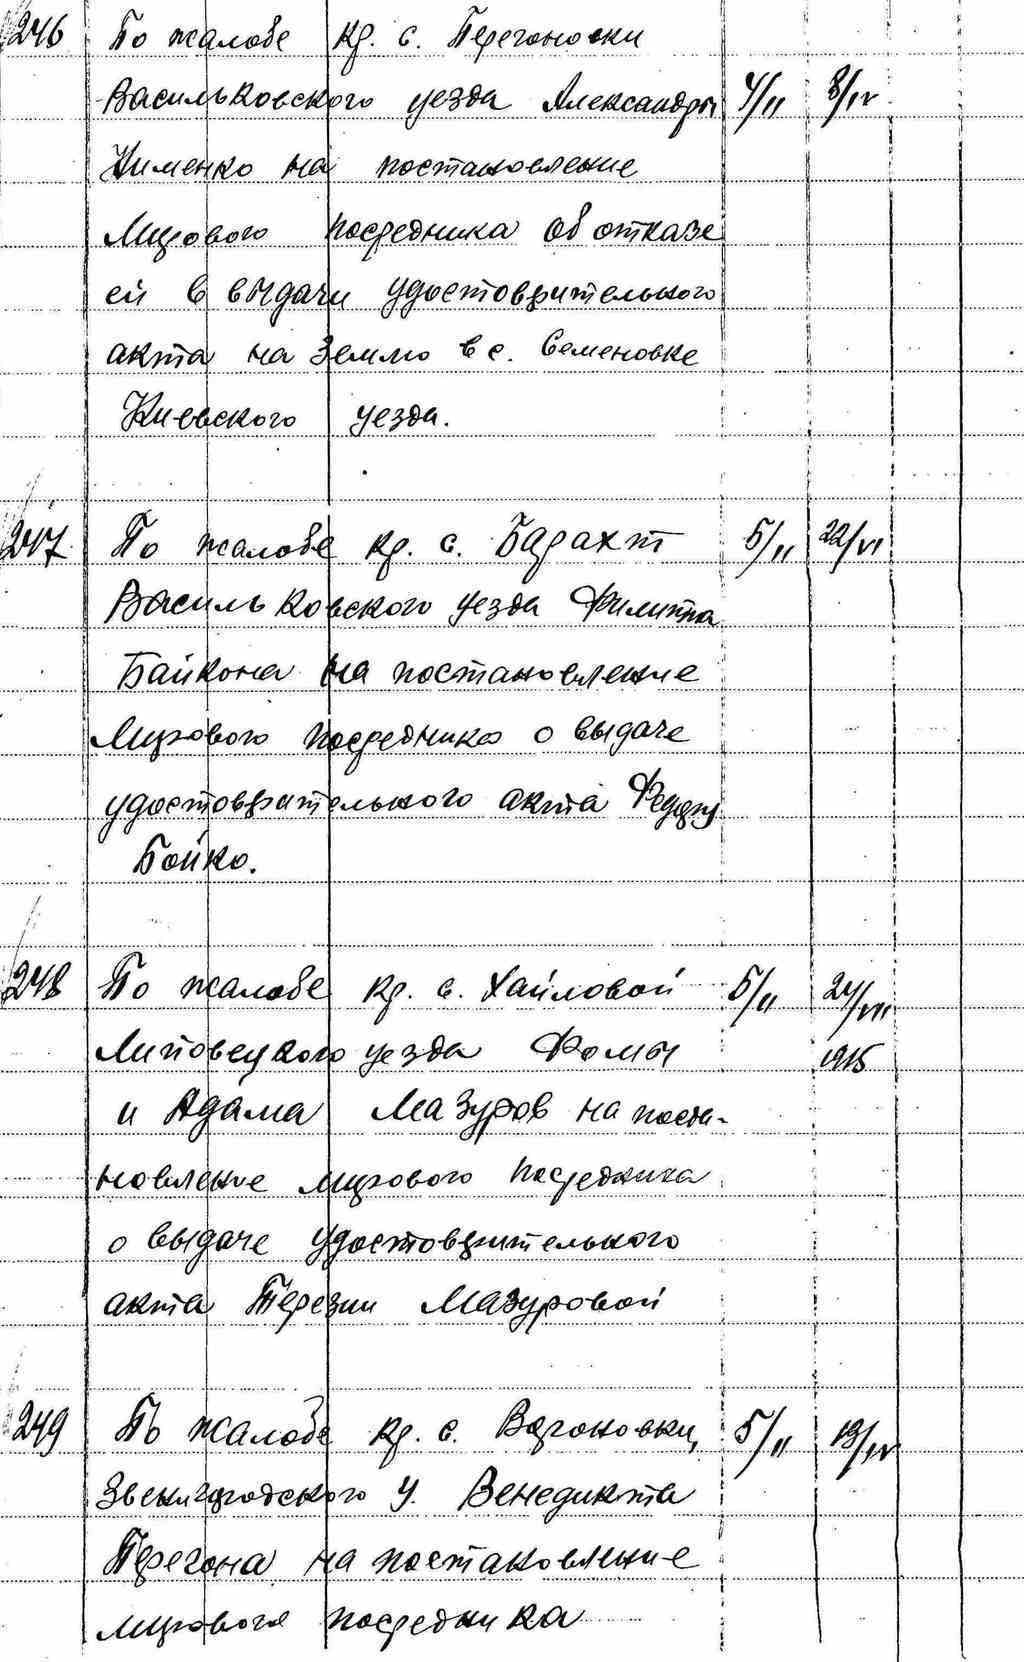 246 По жалобе кр. с. Перегоновки
Васильковского уезда Александры 4/II 8/IV
Клименко на постановление
Мирового посредника об отказе
ей в выдачи удостоверительного
акта на землю в с. Семеновке
Киевского уезда.
247 По жалобе кр. с. Барахт 5/II 22/VI
Васильковского уезда Филиппа
Байкона на постановление
Мирового посредника о выдаче
удостоверительного акта Федору
Бойко.
248 По жалобе кр. с. Хайловой 5/II 24/VII
Липовецкого уезда Фомы 1915
и Адама Мазуров на поста-
новление мирового посредника
о выдаче удостоверительного
акта Терезии Мазуровой
249 По жалобе кр. с. 5/II 13/IV
Звенигородского у. Венедикта
Перегона на постановление
мирового посредника